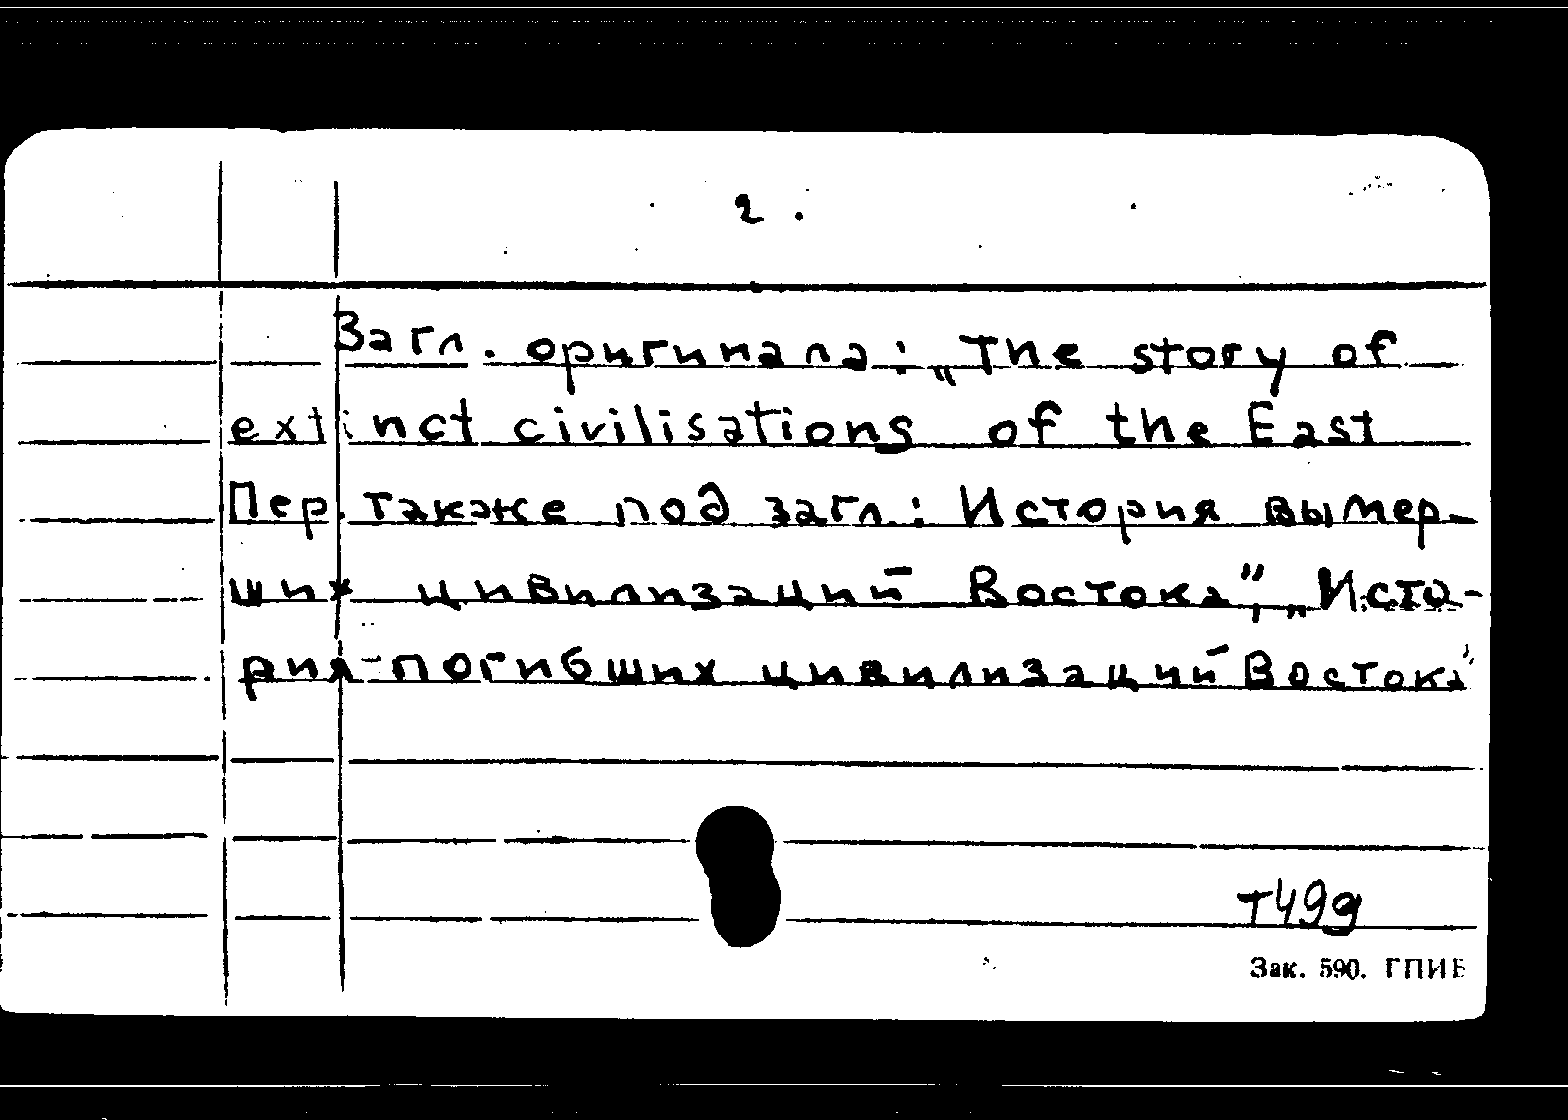 2.
Загл. оригинала: „The story of
extinct civilisations of the East
Пер. также под загл.: История вымер-
ших цивилизаций Востока", „Исто-
рия погибших цивилизаций Востока"
Т49g
Зак. 590. ГПИБ